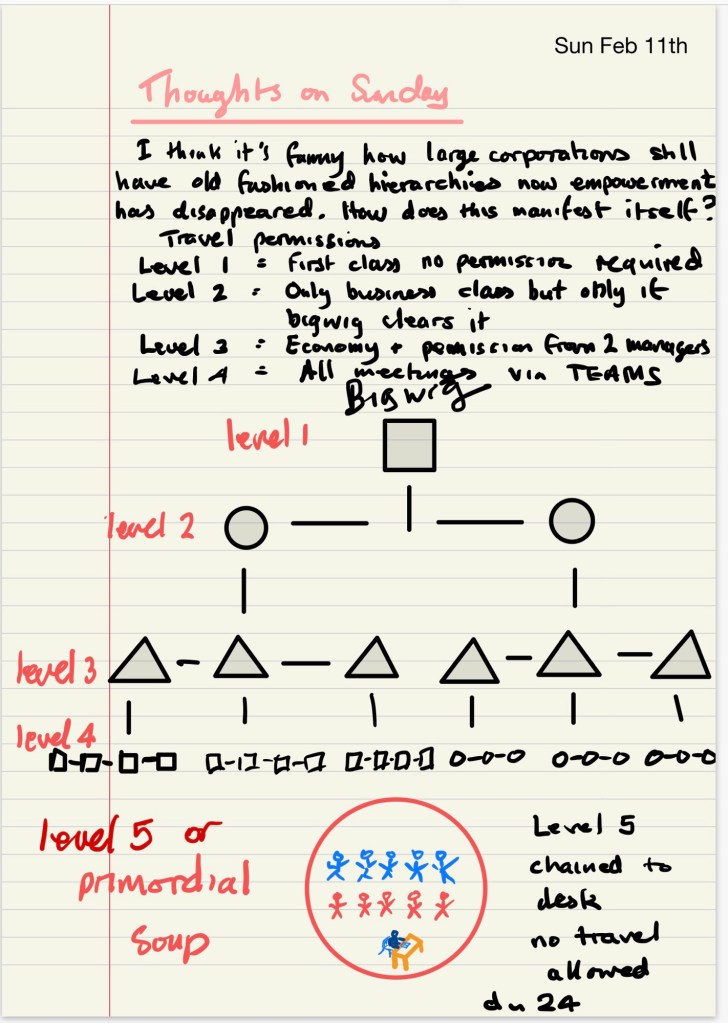 Sun Feb 11th
Thoughts on Sunday
I think it's funny how large corporations still
have old fashioned hierarchies now empowerment
has disappeared. How does this manifest itself?
Travel permissions
Level 1 = First class no permission required
Level 2 = Only business class but only if
bigwig clears it
Level 3 = Economy + permission from 2 managers
Level 4 = All meetings via TEAMS
Bigwig
level 1
level 2
level 3
level 4
level 5 or
primordial
soup
Level 5
chained to
desk
no travel
allowed
du 24